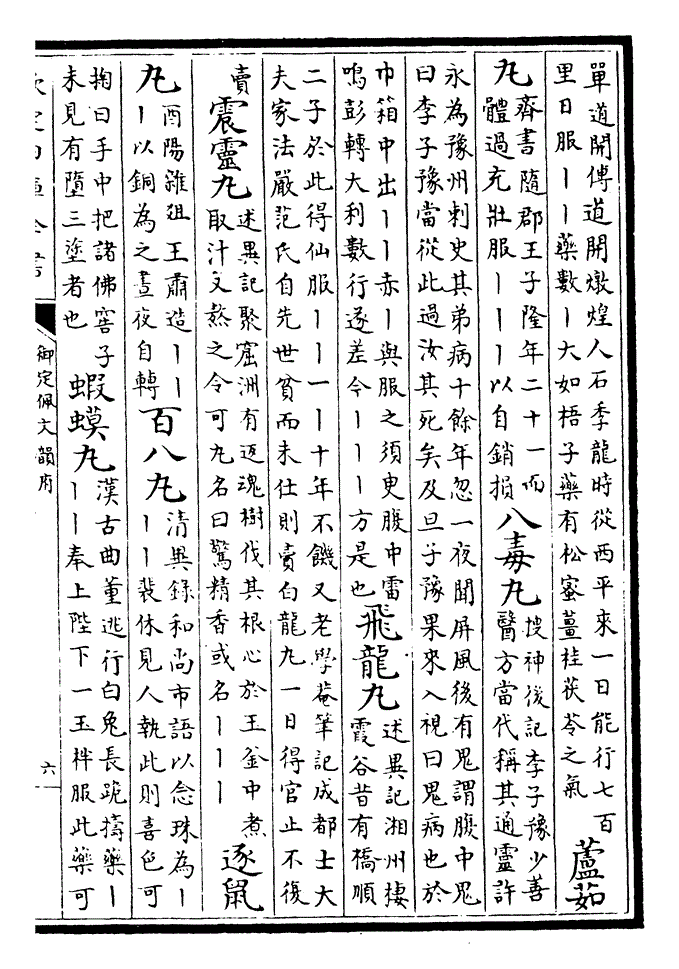 單道開傳道開燉煌人石季龍時從西平來一日能行七百
里日服丨丨藥數丨大如梧子藥有松蜜薑桂茯苓之氣
蘆茹
丸
齊書隨郡王子隆年二十一而
體過充壯服丨丨丨以自銷損
八毒丸
搜神後記李子豫少善
醫方當代稱其通靈許
永為豫州刺史其弟病十餘年忽一夜聞屏風後有鬼謂腹中鬼
曰李子豫當從此過汝其死矣及旦子豫果來入視曰鬼病也於
巾箱中出丨丨赤丨與服之須臾腹中雷
鳴彭轉大利數行遂差今丨丨丨方是也
飛龍丸
述異記湘州棲
霞谷昔有橋順
二子於此得仙服丨丨一丨十年不饑又老學菴筆記成都士大
夫家法嚴范氏自先世貧而未仕則賣白龍丸一日得官止不復
賣
震靈丸
述異記聚窟洲有返魂樹伐其根心於玉釜中煮
取汁又熬之令可丸名曰驚精香或名丨丨丨
逐鼠
丸
酉陽雜俎王肅造丨丨
丨以銅為之晝夜自轉
百八丸
清異錄和尚市語以念珠為丨
丨丨裴休見人執此則喜色可
掬曰手中把諸佛窖子
未見有墮三塗者也
蝦蟆丸
漢古曲董逃行白兔長跪擣藥丨
丨丨奉上陛下一玉柈服此藥可
欽定四庫全書
御定佩文韻府
六